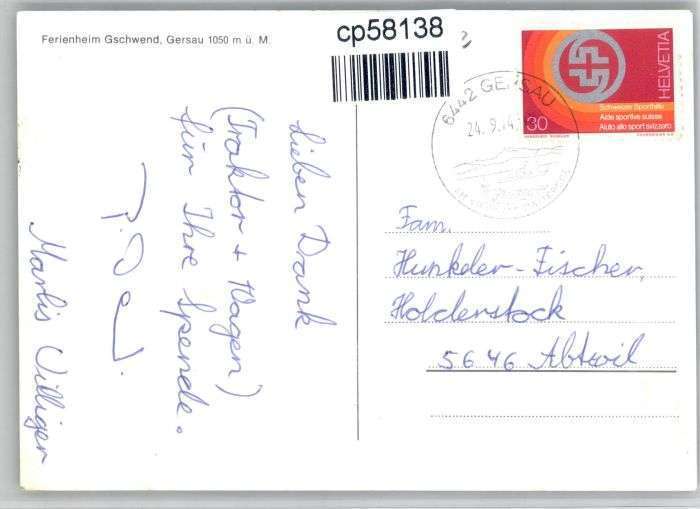 Ferienheim Gschwend, Gersau 1050 m ü. M.
cp58138
HELVETIA
Schweizer Sporthilfe
Aide sportive suisse
Aiuto allo sport svizzero
30
6442 GERSAU
24. 9. 74
Lieben Dank
(Traktor + Wagen)
für Ihre Spende.
Marlis Villiger
Fam.
Hunkeler-Fischer,
Holderstock
5646 Abtwil